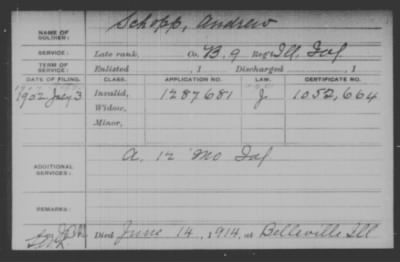 NAME OF SOLDIER: Schopp, Andrew
SERVICE: Late rank, Co. B. 9 Reg't Ill. Inf
TERM OF SERVICE: Enlisted , 1 Discharged , 1
DATE OF FILING. CLASS. APPLICATION NO. LAW. CERTIFICATE NO.
1902 July 3 Invalid, 1287681 J 1,052,664
Widow,
Minor,
ADDITIONAL SERVICES: A. 12 Mo Inf
REMARKS:
Died June 14, 1914, at Belleville Ill